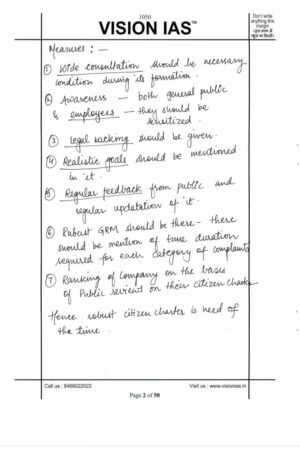 1050
VISION IAS™
Don't write
anything this
margin
Measures : —
① Wide consultation should be necessary
condition during its formation.
② Awareness — both general public
& employees — they should be
sensitized.
③ Legal backing should be given.
④ Realistic goals should be mentioned
in it.
⑤ Regular feedback from public and
regular updatation of it.
⑥ Robust GRM should be there – there
should be mention of time duration
required for each category of complaints
⑦ Ranking of Company on the basis
of Public reviews on their citizen charter
Hence robust citizen charter is need of
the time.
Call us : 8468022022
Visit us : www.visionias.in
Page 2 of 50